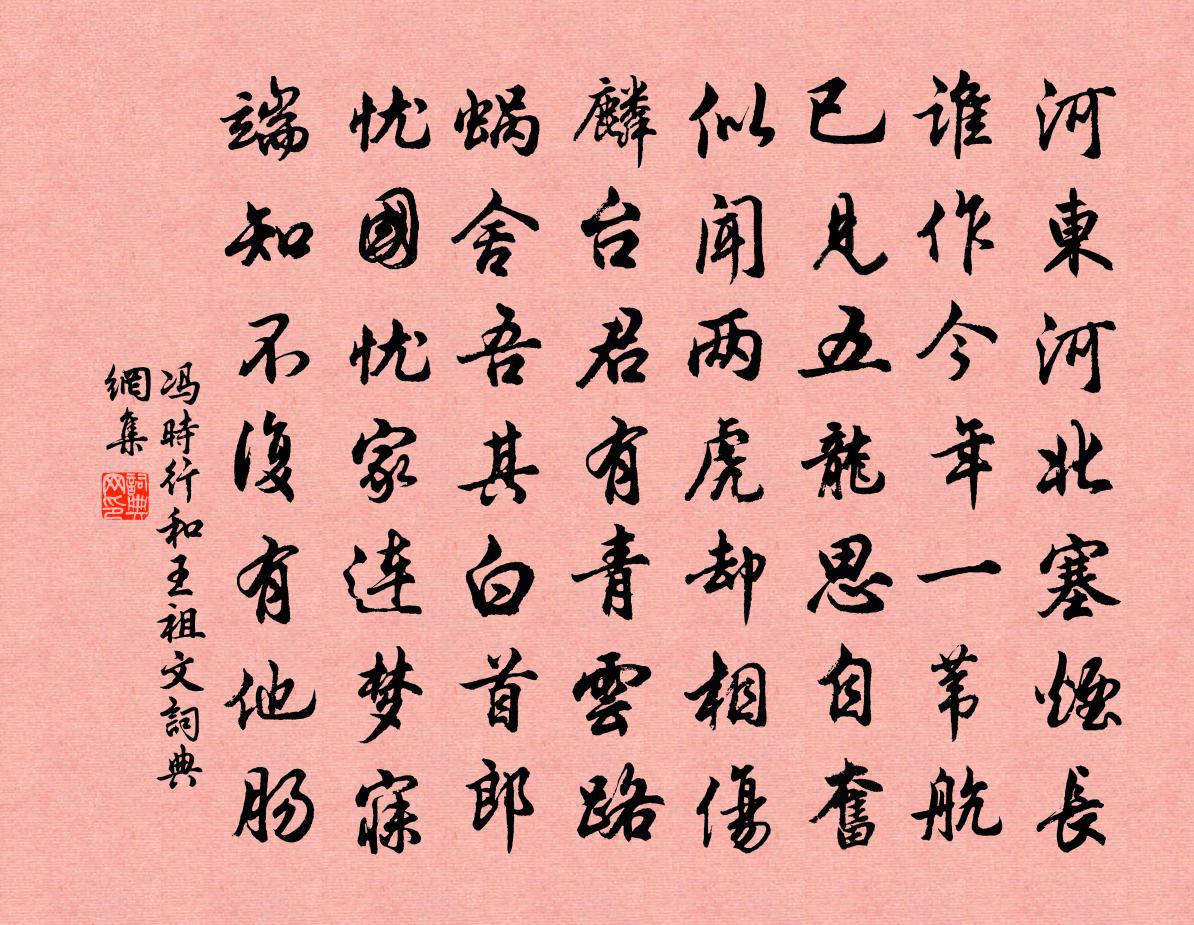 河東河北塞煙長
誰作今年一苇航
已見五龍思自奮
似闻两虎却相傷
麟台君有青雲路
蜗舍吾其白首郎
忧國忧家连梦寐
端知不復有他肠
冯時行和王祖文詞典
網集
詞典网印